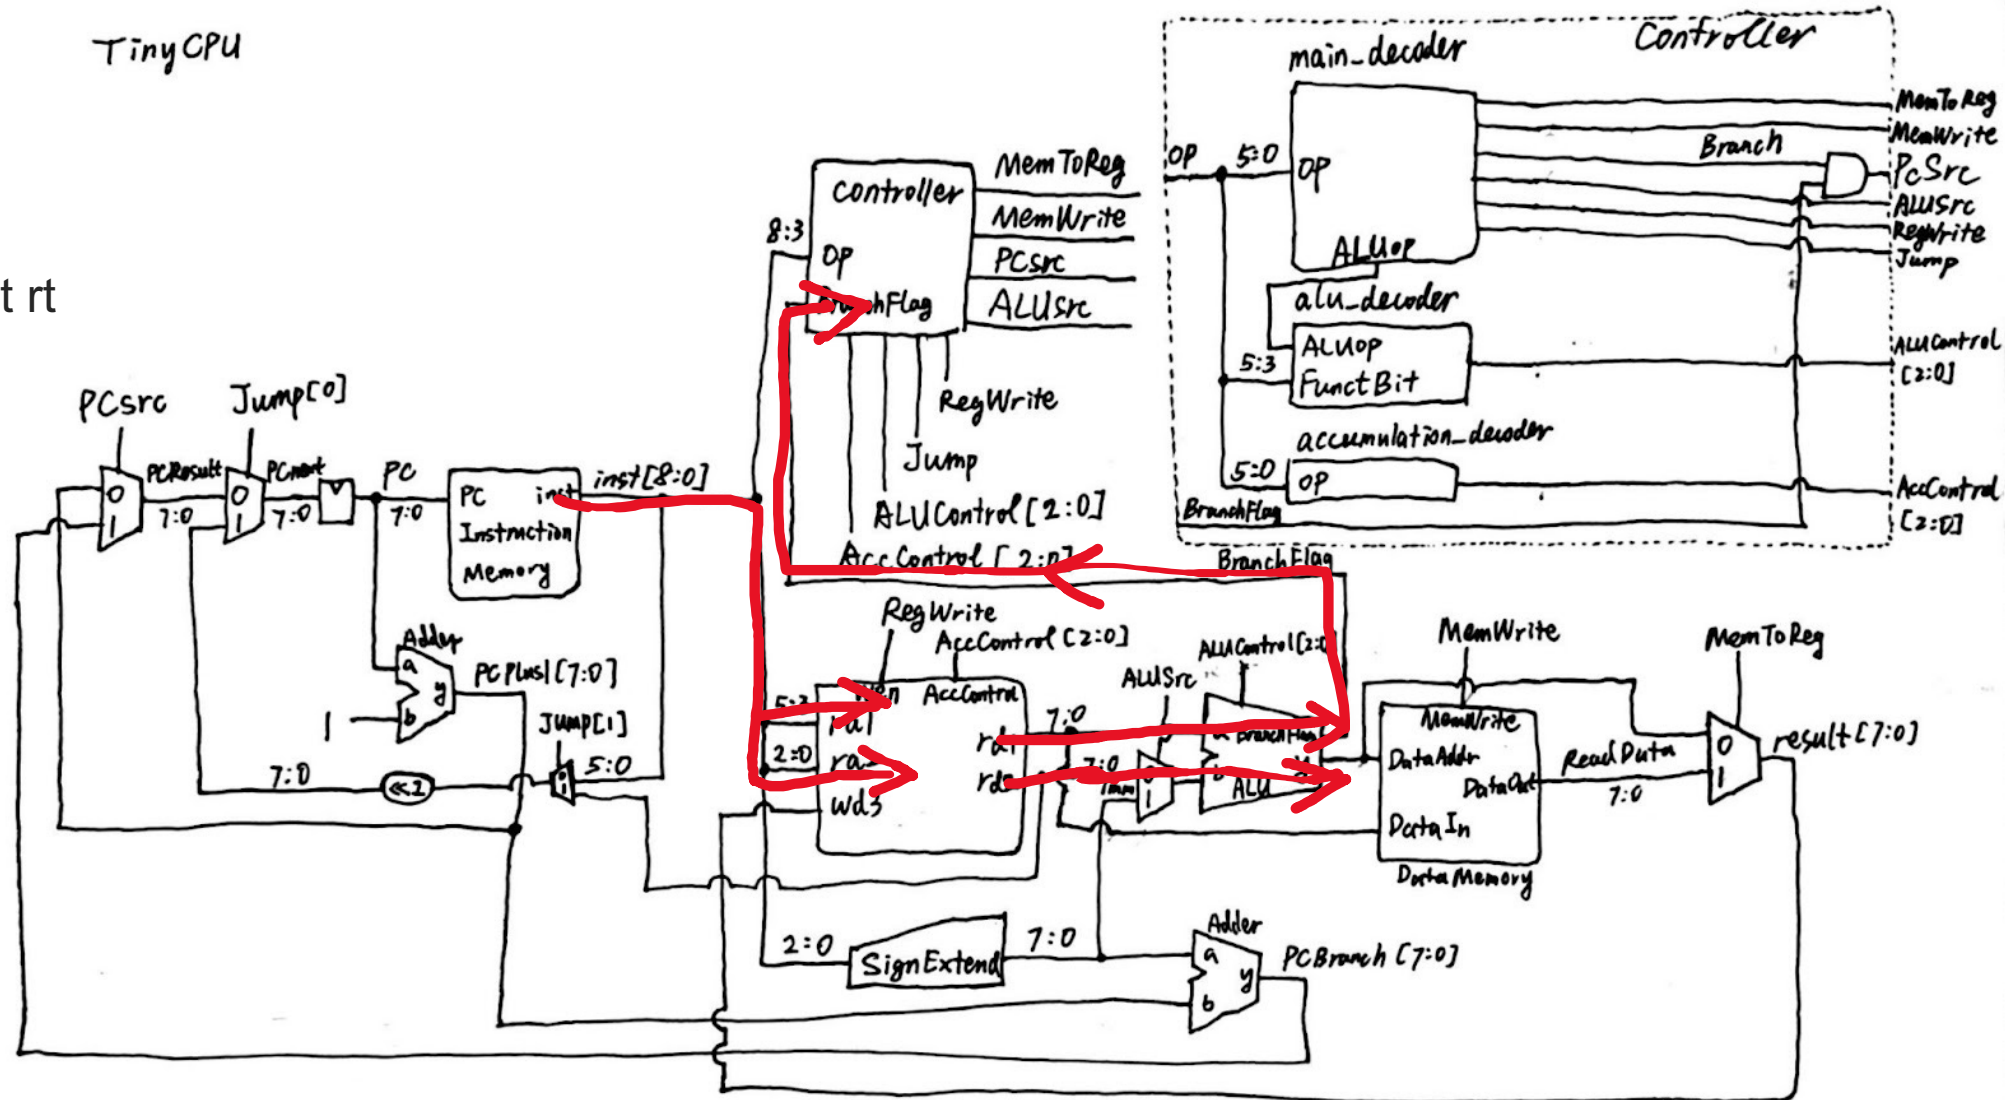 TinyCPU
t rt
Controller
main_decoder
OP
5:0
OP
ALUop
MemToReg
MemWrite
Branch
PcSrc
ALUSrc
RegWrite
Jump
alu_decoder
5:3
ALUop
FunctBit
ALUControl
[2:0]
accumulation_decoder
5:0
OP
AccControl
[2:0]
BranchFlag
controller
8:3
OP
MemToReg
MemWrite
PCsrc
ALUsrc
RegWrite
Jump
ALUControl [2:0]
AccControl [2:0]
BranchFlag
PCsrc
Jump[0]
0
1
PCResult
7:0
0
1
PCnext
7:0
PC
7:0
PC
inst
Instruction
Memory
inst[8:0]
Adder
a
b
y
1
PCPlus1[7:0]
Jump[1]
5:0
<<2
7:0
RegWrite
AccControl[2:0]
AccControl
5:3
2:0
wd3
7:0
7:0
ALUSrc
1
ALUControl[2:0]
ALU
MemWrite
MemWrite
DataAddr
DataOut
DataIn
DataMemory
ReadData
7:0
MemToReg
0
1
result[7:0]
2:0
SignExtend
7:0
Adder
a
b
y
PCBranch [7:0]